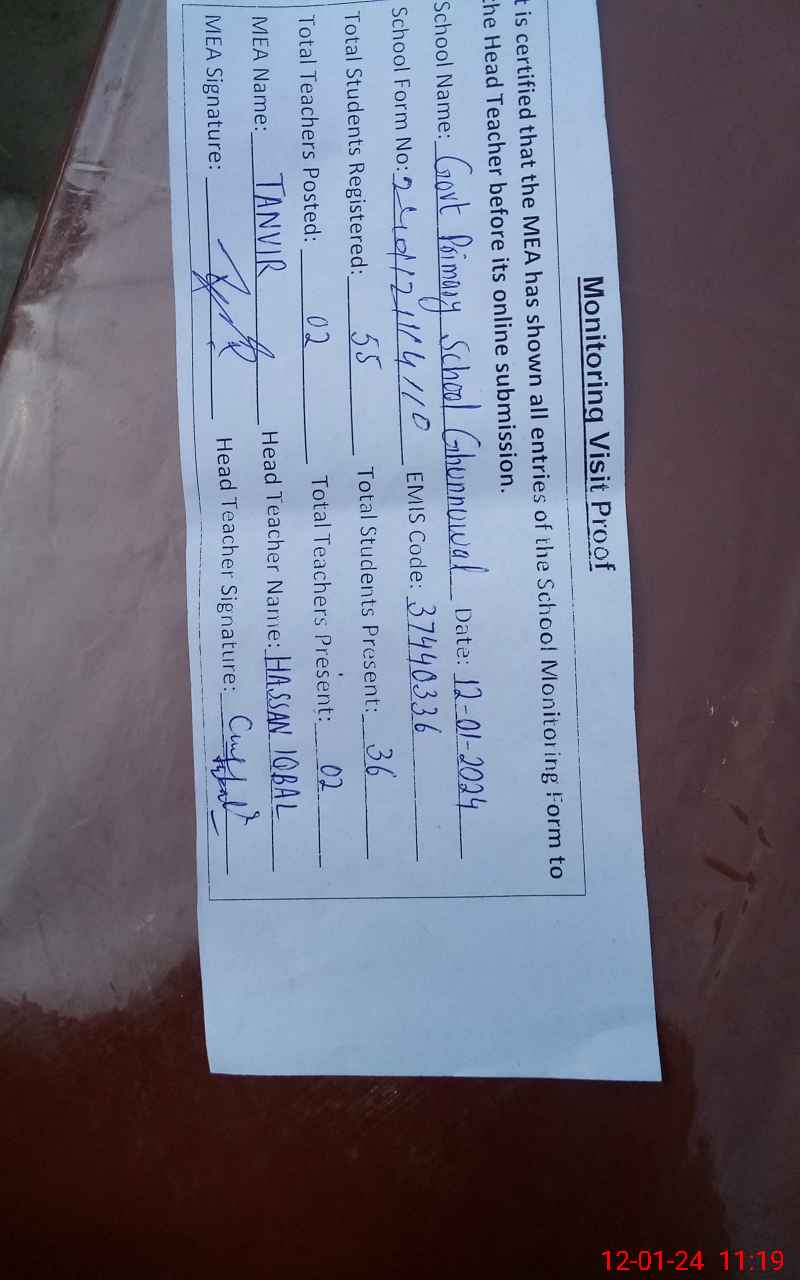 Monitoring Visit Proof
t is certified that the MEA has shown all entries of the School Monitoring Form to
he Head Teacher before its online submission.
School Name: Govt Primary School Ghunnuwal Date: 12-01-2024
School Form No: EMIS Code: 37440336
Total Students Registered: 55 Total Students Present: 36
Total Teachers Posted: 02 Total Teachers Present: 02
MEA Name: TANVIR Head Teacher Name: HASSAN IQBAL
MEA Signature: Head Teacher Signature:
12-01-24 11:19